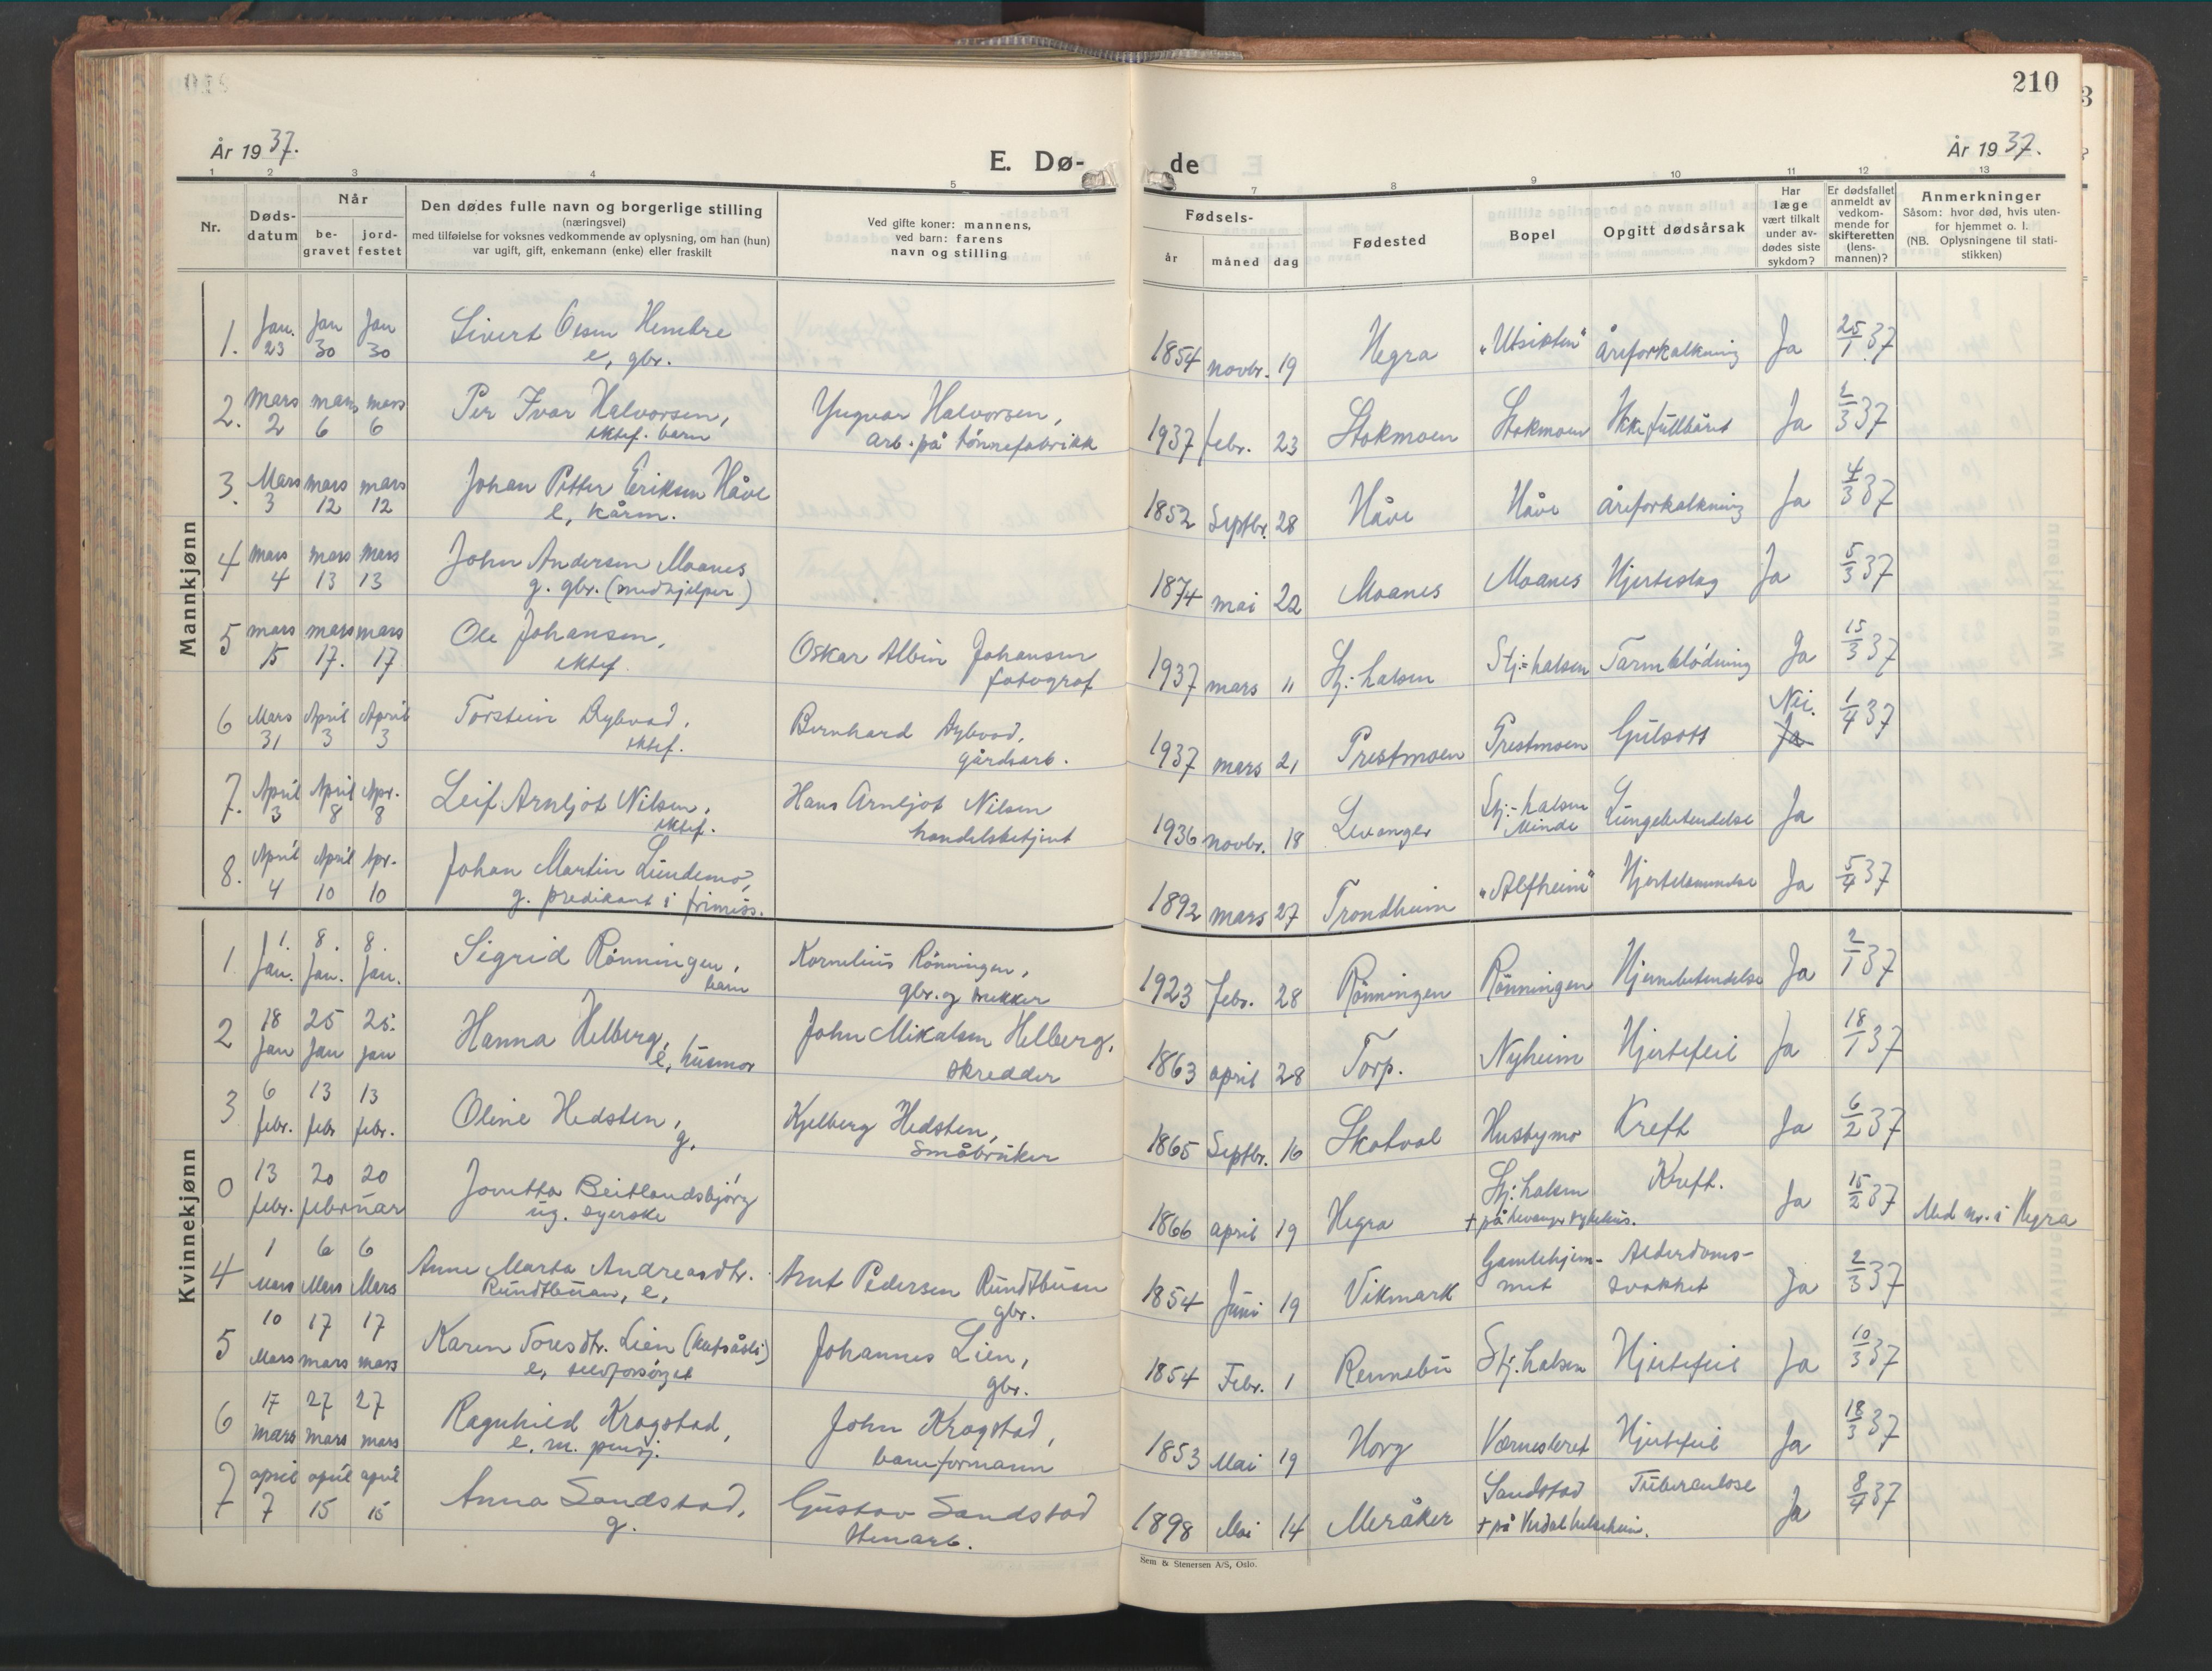 210
År 1937.
E. Dø-
de
År 1937.
1 2 3 4 5 7 8 9 10 11 12 13
Nr.
Døds-
datum
Når
be-
gravet
jord-
festet
Den dødes fulle navn og borgerlige stilling
(næringsvei)
med tilføielse for voksnes vedkommende av oplysning, om han (hun)
var ugift, gift, enkemann (enke) eller fraskilt
Ved gifte koner: mannens,
ved barn: farens
navn og stilling
Fødsels-
år måned dag
Fødested
Bopel
Opgitt dødsårsak
Har
læge
vært tilkalt
under av-
dødes siste
sykdom?
Er dødsfallet
anmeldt av
vedkom-
mende for
skifteretten
(lens-
mannen)?
Anmerkninger
Såsom: hvor død, hvis uten-
for hjemmet o. l.
(NB. Oplysningene til stati-
stikken)
Mannkjønn
1. Jan. 23 Jan 30 Jan 30 Sivert Olsen Hembre 1854 novbr. 19 Hegra "Utsikten" åreforkalkning Ja 25/1 37
e, gbr.
2. Mars 2 mars 6 mars 6 Per Ivar Halvorsen, Yngvar Halvorsen, 1937 febr. 23 Stokmoen Stokmoen Ikke fullbåret Ja 2/3 37
ektef. barn arb. på tønnefabrikk
3. Mars 3 mars 12 mars 12 Johan Petter Eriksen Håve 1852 Septbr. 28 Håve Håve åreforkalkning Ja 4/3 37
e, kårm.
4 mars 4 mars 13 mars 13 John Andersen Moanes 1874 mai 22 Moanes Moanes Hjerteslag Ja 5/3 37
g. gbr. (medhjelper)
5 mars 15 mars 17. mars 17 Ole Johansen, Oskar Albin Johansen 1937 mars 11 Stj:halsen Stj:halsen Tarmblødning Ja 15/3 37
ektef. fotograf
6 Mars 31 April 3 April 3 Torstein Dybvad, Bernhard Dybvad, 1937 mars 21 Prestmoen Prestmoen Gulsott Nei. Ja 1/4 37
ektef. gårdsarb.
7. April 3 April 8 Apr. 8 Leif Arnljot Nilsen, Hans Arnljot Nilsen 1936 novbr. 18 Levanger Stj:-halsen Minde Lungebetendelse Ja
ektef. handelsbetjent
8. April 4 April 10 Apr. 10 Johan Martin Lundemo, 1892 mars 27 Trondheim "Alfheim" Hjertelammelse Ja 5/4 37
g. predikant i frimiss.
Kvinnekjønn
1 1. Jan. 8. Jan. 8. Jan. Sigrid Rønningen, Kornelius Rønningen, 1923 febr. 28 Rønningen Rønningen Hjernebetendelse Ja 2/1 37
barn gbr. og trekker
2 18 Jan 25 Jan 25. Jan Hanna Helberg, John Mikalsen Helberg, 1863 april 28 Torp. Nyheim Hjertefeil Ja 18/1 37
e, husmor skredder
3 6 febr. 13 febr 13 febr. Oline Hedsten, Kjelberg Hedsten, 1865 Septbr. 16 Skatval Husbymo Kreft Ja 6/2 37
g. Småbruker
0 13 febr. 20 20 februar Jonetta Beitlandsbjørg 1866 april 19 Hegra Stj:halsen Kreft. Ja 15/2 37 Med nr. i Hegra
ug. syerske + på Levanger sykehus.
4 1 Mars 6 Mars 6 Mars Anne Marta Andreasdtr. Arnt Pedersen Rundtbuan 1854 Juni 19 Vikmark Gamlehjem- Alderdoms- Ja 2/3 37
Rundtbuan, e, gbr. met svakhet
5 10 Mars 17 mars 17 mars Karen Toresdtr. Lien (Kutsåsli) Johannes Lien, 1854 Febr. 1 Rennebu Stj.halsen Hjertefeil Ja 10/3 37
e, selvforsørget gbr.
6 17 mars 27 mars 27 mars Ragnhild Krogstad, John Krogstad, 1853 Mai 19 Horg Værnesleret Hjertefeil Ja 18/3 37
e. m. pensj. baneformann
7 april 7 april 15 april 15 Anna Sandstad, Gustav Sandstad 1898 Mai 14 Meråker Sandstad Tuberculose Ja 8/4 37
g. Stenarb. + på Verdal helseheim.
Sem & Stenersen A/S, Oslo.